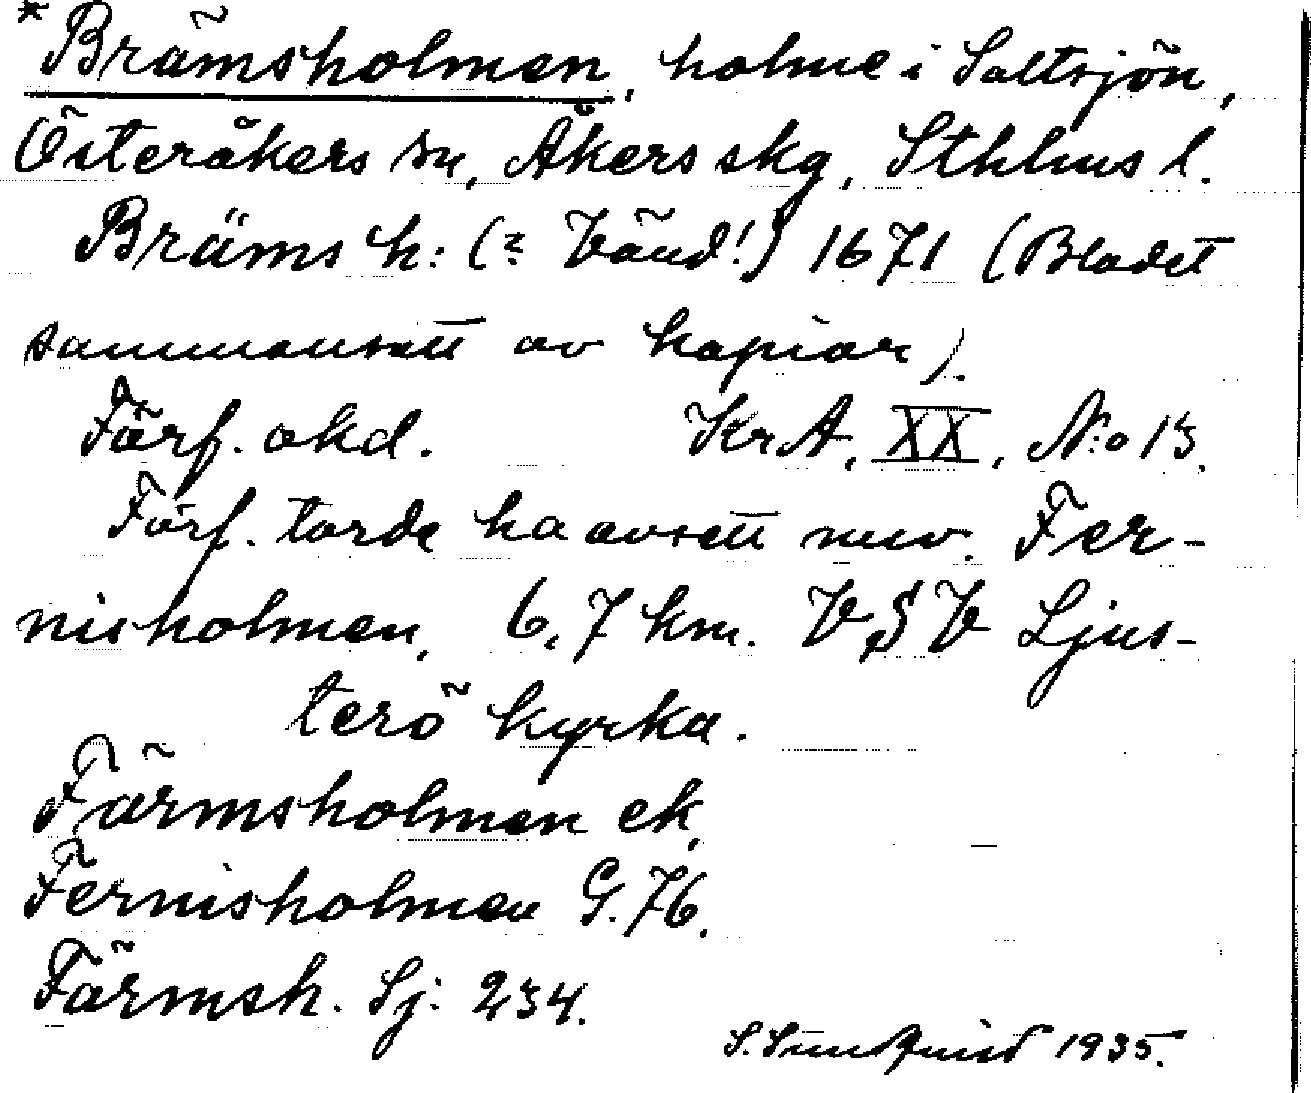 *Brämsholmen, holme i Saltsjön,
Österåkers sn, Åkers skg, Sthlms l.
Bräms h: (? Vänd!) 1671 (Bladet
sammansatt av kopior).
Förf. okd. KrA, XX, N:o 13.
Förf. torde ha avsett nuv. Fer-
nisholmen, 6,7 km. V§V Ljus-
terö kyrka.
Färmsholmen ek,
Fernisholmen G. 76.
Färmsh. Sj: 234.
S. Sundquist 1935.